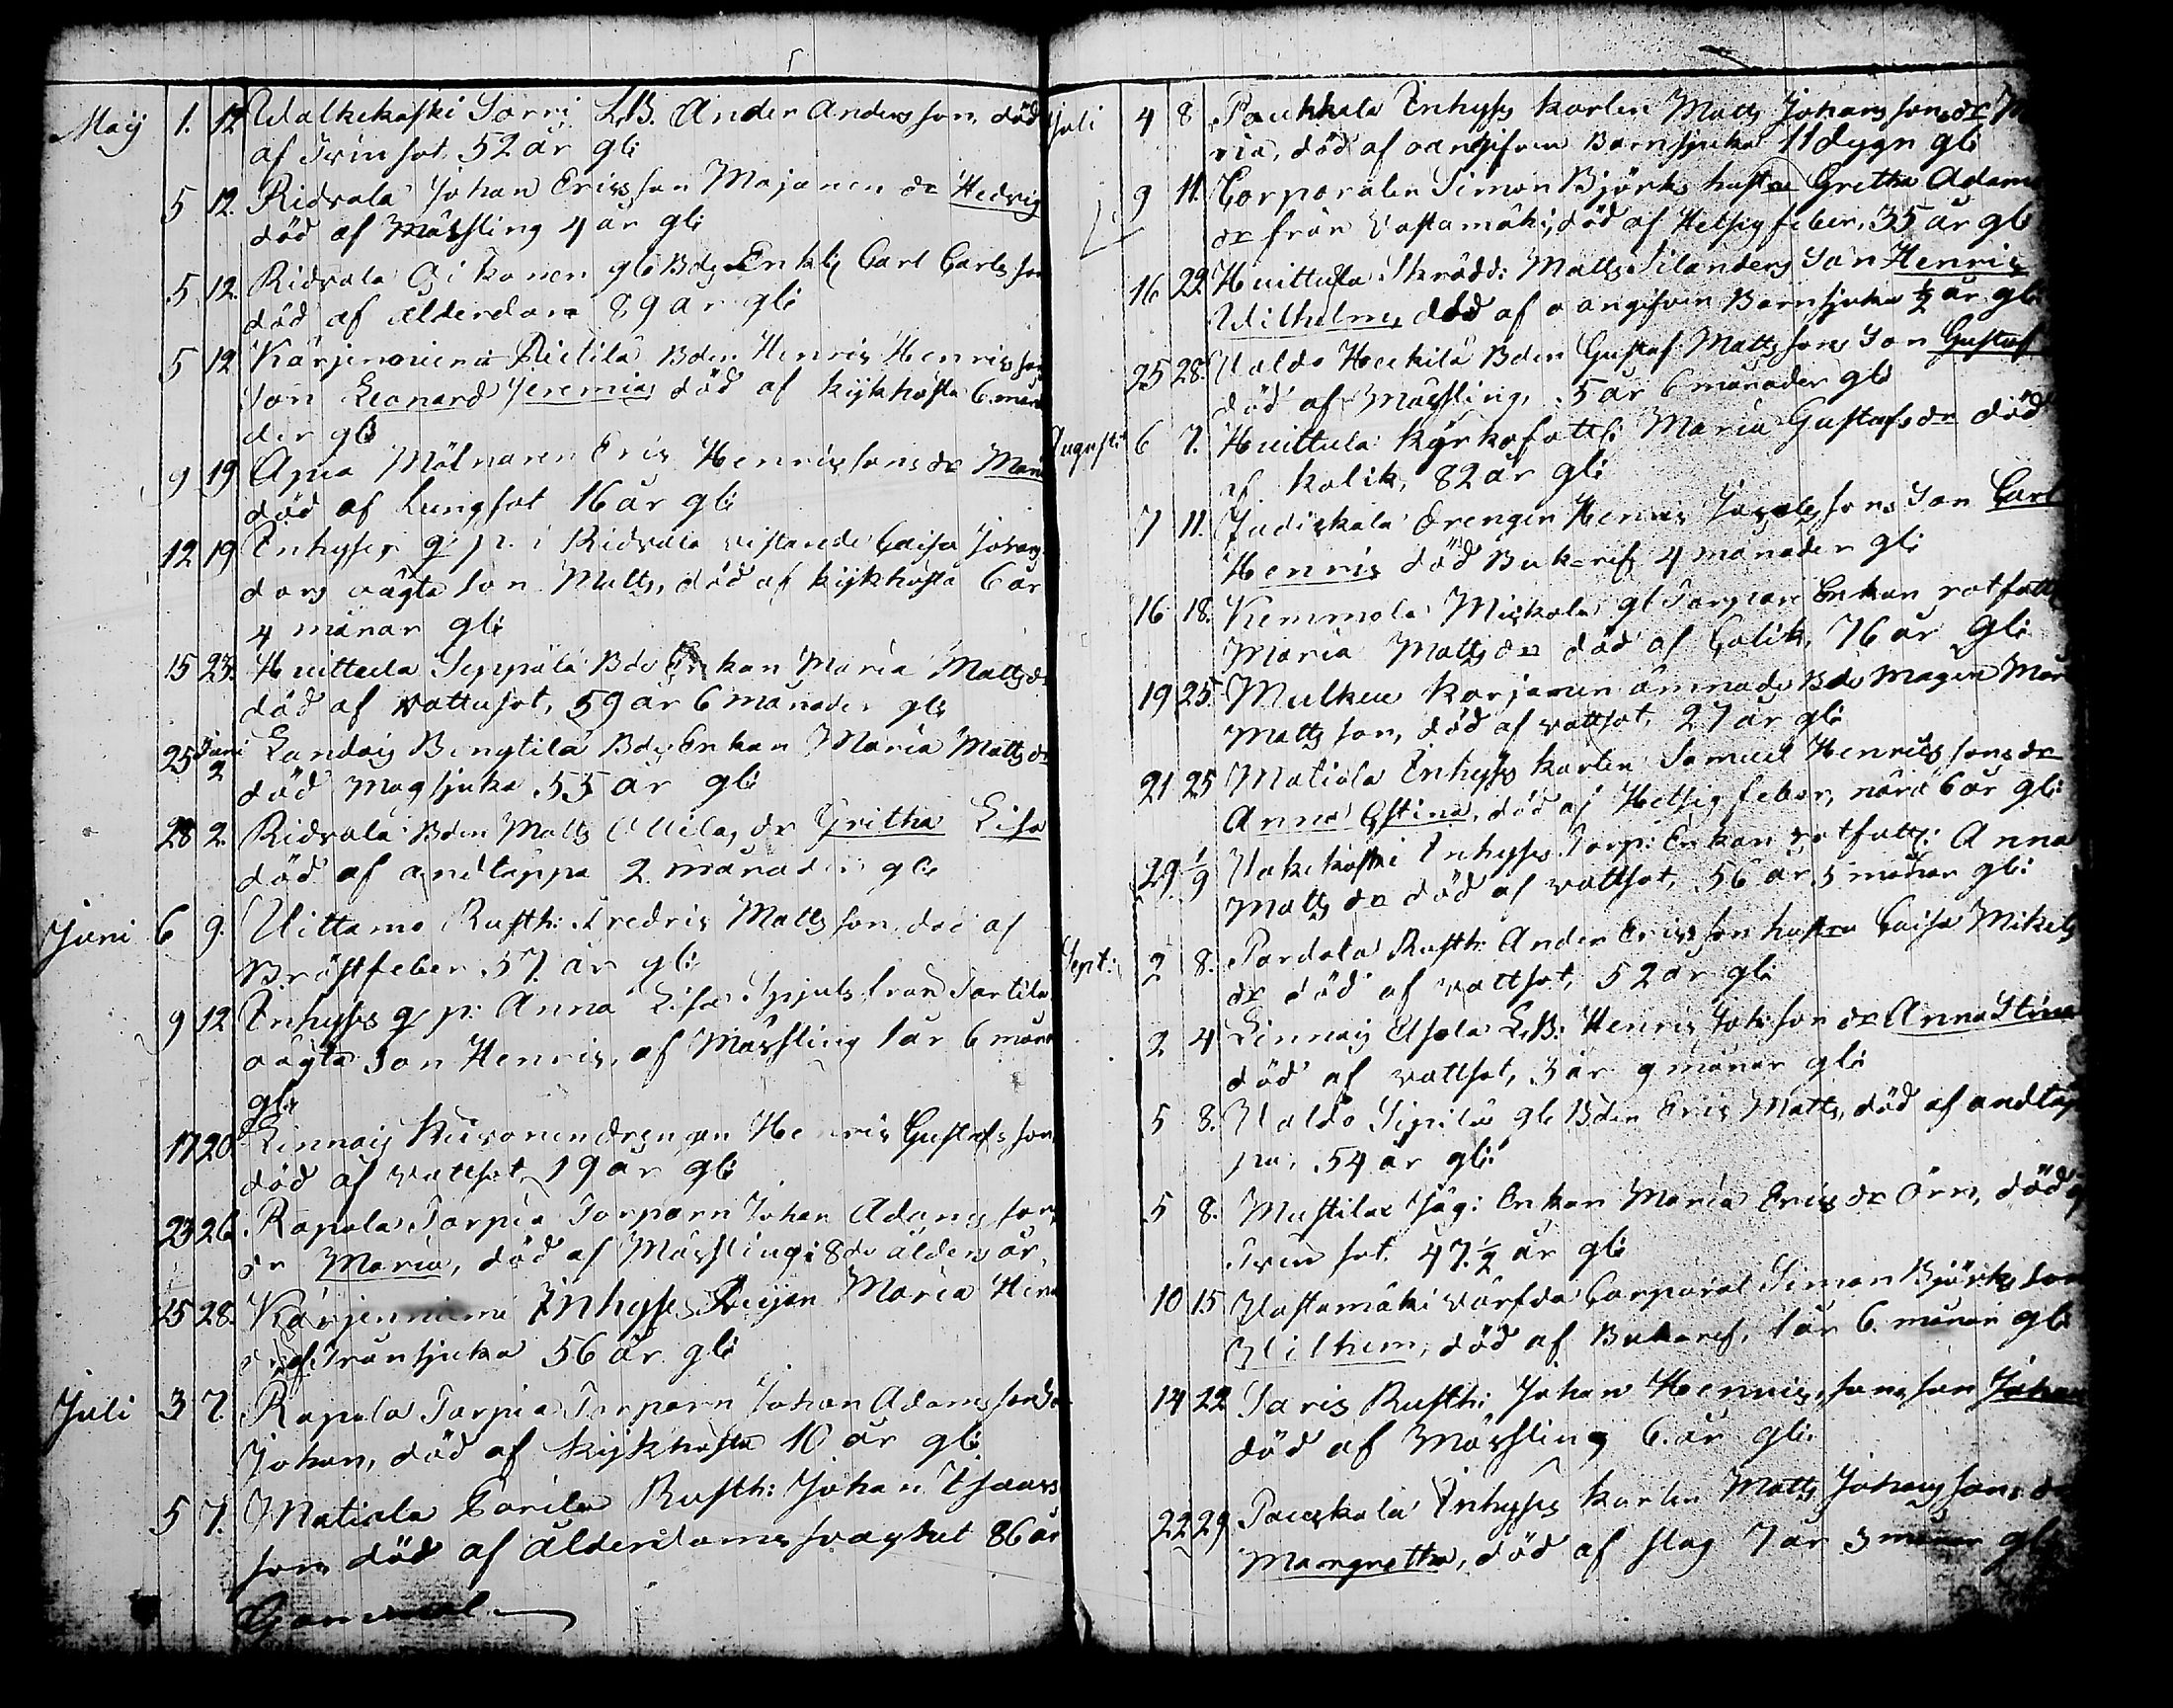 5
May 1. 12 Walkekoski Sorri L.B. Ander Andersson, död
af Tvinsot 52 år gl:
5 12. Ridvala Johan Ericsson Majanen dr Hedvig
död af Mässling 4 år gl:
5 12. Ridvala Oikonen gle Bdg Enkl: Carl Carlsson
död af ålderdom 89 år gl:
5 12 Kärjenniemi Pietilä Bden Henric Henricsson
Son Leonard Jeremias död af kikhosta 6 måna
der gl:
9 19 Apia Mölnaren Eric Henricssons dr Maria
död af Lungsot 16 år gl:
12 19 Inhyses q: p. i Ridvala vistande Caisa Johans
drs oägta son Matts, död af kikhosta 6 år
4 månar gl:
15 23. Huittula Seppälä Bde Enkan Maria Mattsdr
död af vattusot, 59 år 6 månader gl:
25 Juni 2 Landoig Bengtilä Bde Enkan Maria Mattsdr
död Magsjuka 55 år gl:
28 2. Ridvala Bden Matts Ollilas dr Gretha Lisa
död af andtäppa 2 månader gl:
Juni 6 9. Uittamo Rusth: Fredric Mattsson död af
Bröstfeber 57 år gl:
9 12 Inhyses q: p: Anna Lisa Spjuts från Sontila
oägta Son Henric, af Mässling 1 år 6 måna
gl:
17 20 Linnais drengen Henric Gustafsson
död af vattsot 19 år gl:
23 26. Rapola Torpia Torparn Johan Adamssons
dr Maria, död af Mässling i 8de ålders år,
25 28. Kärjenniemi Inhyses Pigan Maria Henr
dr af Transjuka 56 år gl:
Juli 3 7. Rapola Torpia Torparn Johan Adamssons Son
Johan, död af kikhosta 10 år gl:
5 7. Matiala Rusth: Johan Isaacs
son död af ålderdomssvaghet 86 år
Gammal
Juli 4 8 Paukkala Inhyses karlen Matts Johanssons dr Ma
ria, död af oangifven Barnsjuka 11 dygn gl:
9 11. Corporalen Simon Björks hustru Gretha Adams
dr från Vastamäki, död af Hetsig feber, 35 år gl:
16 22. Huittula Skrädd: Matts Silanders Son Henric
Wilhelm, död af oangifven Barnsjuka ½ år gl:
25 28. Uoldo Heikilä Bden Gustaf Mattssons Son Gustaf
död af Mässling, 5 år 6 månader gl:
Augusti 6 7. Huittula kyrkofatt: Maria Gustafsdr död
af kolik, 82 år gl:
7 11. Judikala drengen Henric Son Carl
Henric död Bukref 4 månader gl:
16 18. Kemmola Mickola gl Torpare Enkan rotfatt:
Maria Mattsdr död af Colik, 76 år gl:
19 25. Mulkeu Karjanen ämnade Bde Magen
Mattsson, död af vattsot, 27 år gl:
21 25 Matiala Inhyses karlen Samuel Henricssons dr
Anna Cstina, död af Hetsig feber, nära 6 år gl:
29 1/9 Vakekoski Inhyses Torp: Enkan rotfatt: Anna
Mattsdr död af vattsot, 56 år 5 månar gl:
Sept: 2 8. Pordala Rusth: Ander Ericsson hustru Caisa Mikels
dr död af vattsot, 52 år gl:
2 4 Linnais L.B: Henric Johsson dr Anna Stina
död af vattsot, 3 år 9 månar gl:
5 8. Uoldo Sipilä gle Bden Eric Matts, död af andtäp
pa, 54 år gl:
5 8. Mustilax Jäg: Enkan Maria Ericsdr Örn, död af
Tvinsot 47 ½ år gl:
10 15 Vastamäki värfda Corporal Simon Björks Son
Wilhem, död af Bukref, 1 år 6 månar gl:
14 22 Saris Rusth: Johan Henricssons son Johan
död af Mässling 6 år gl:
22 29 Paukkala Inhyses karlen Matts Johanssons dr
Margretha, död af slag 7 år 3 månar gl: